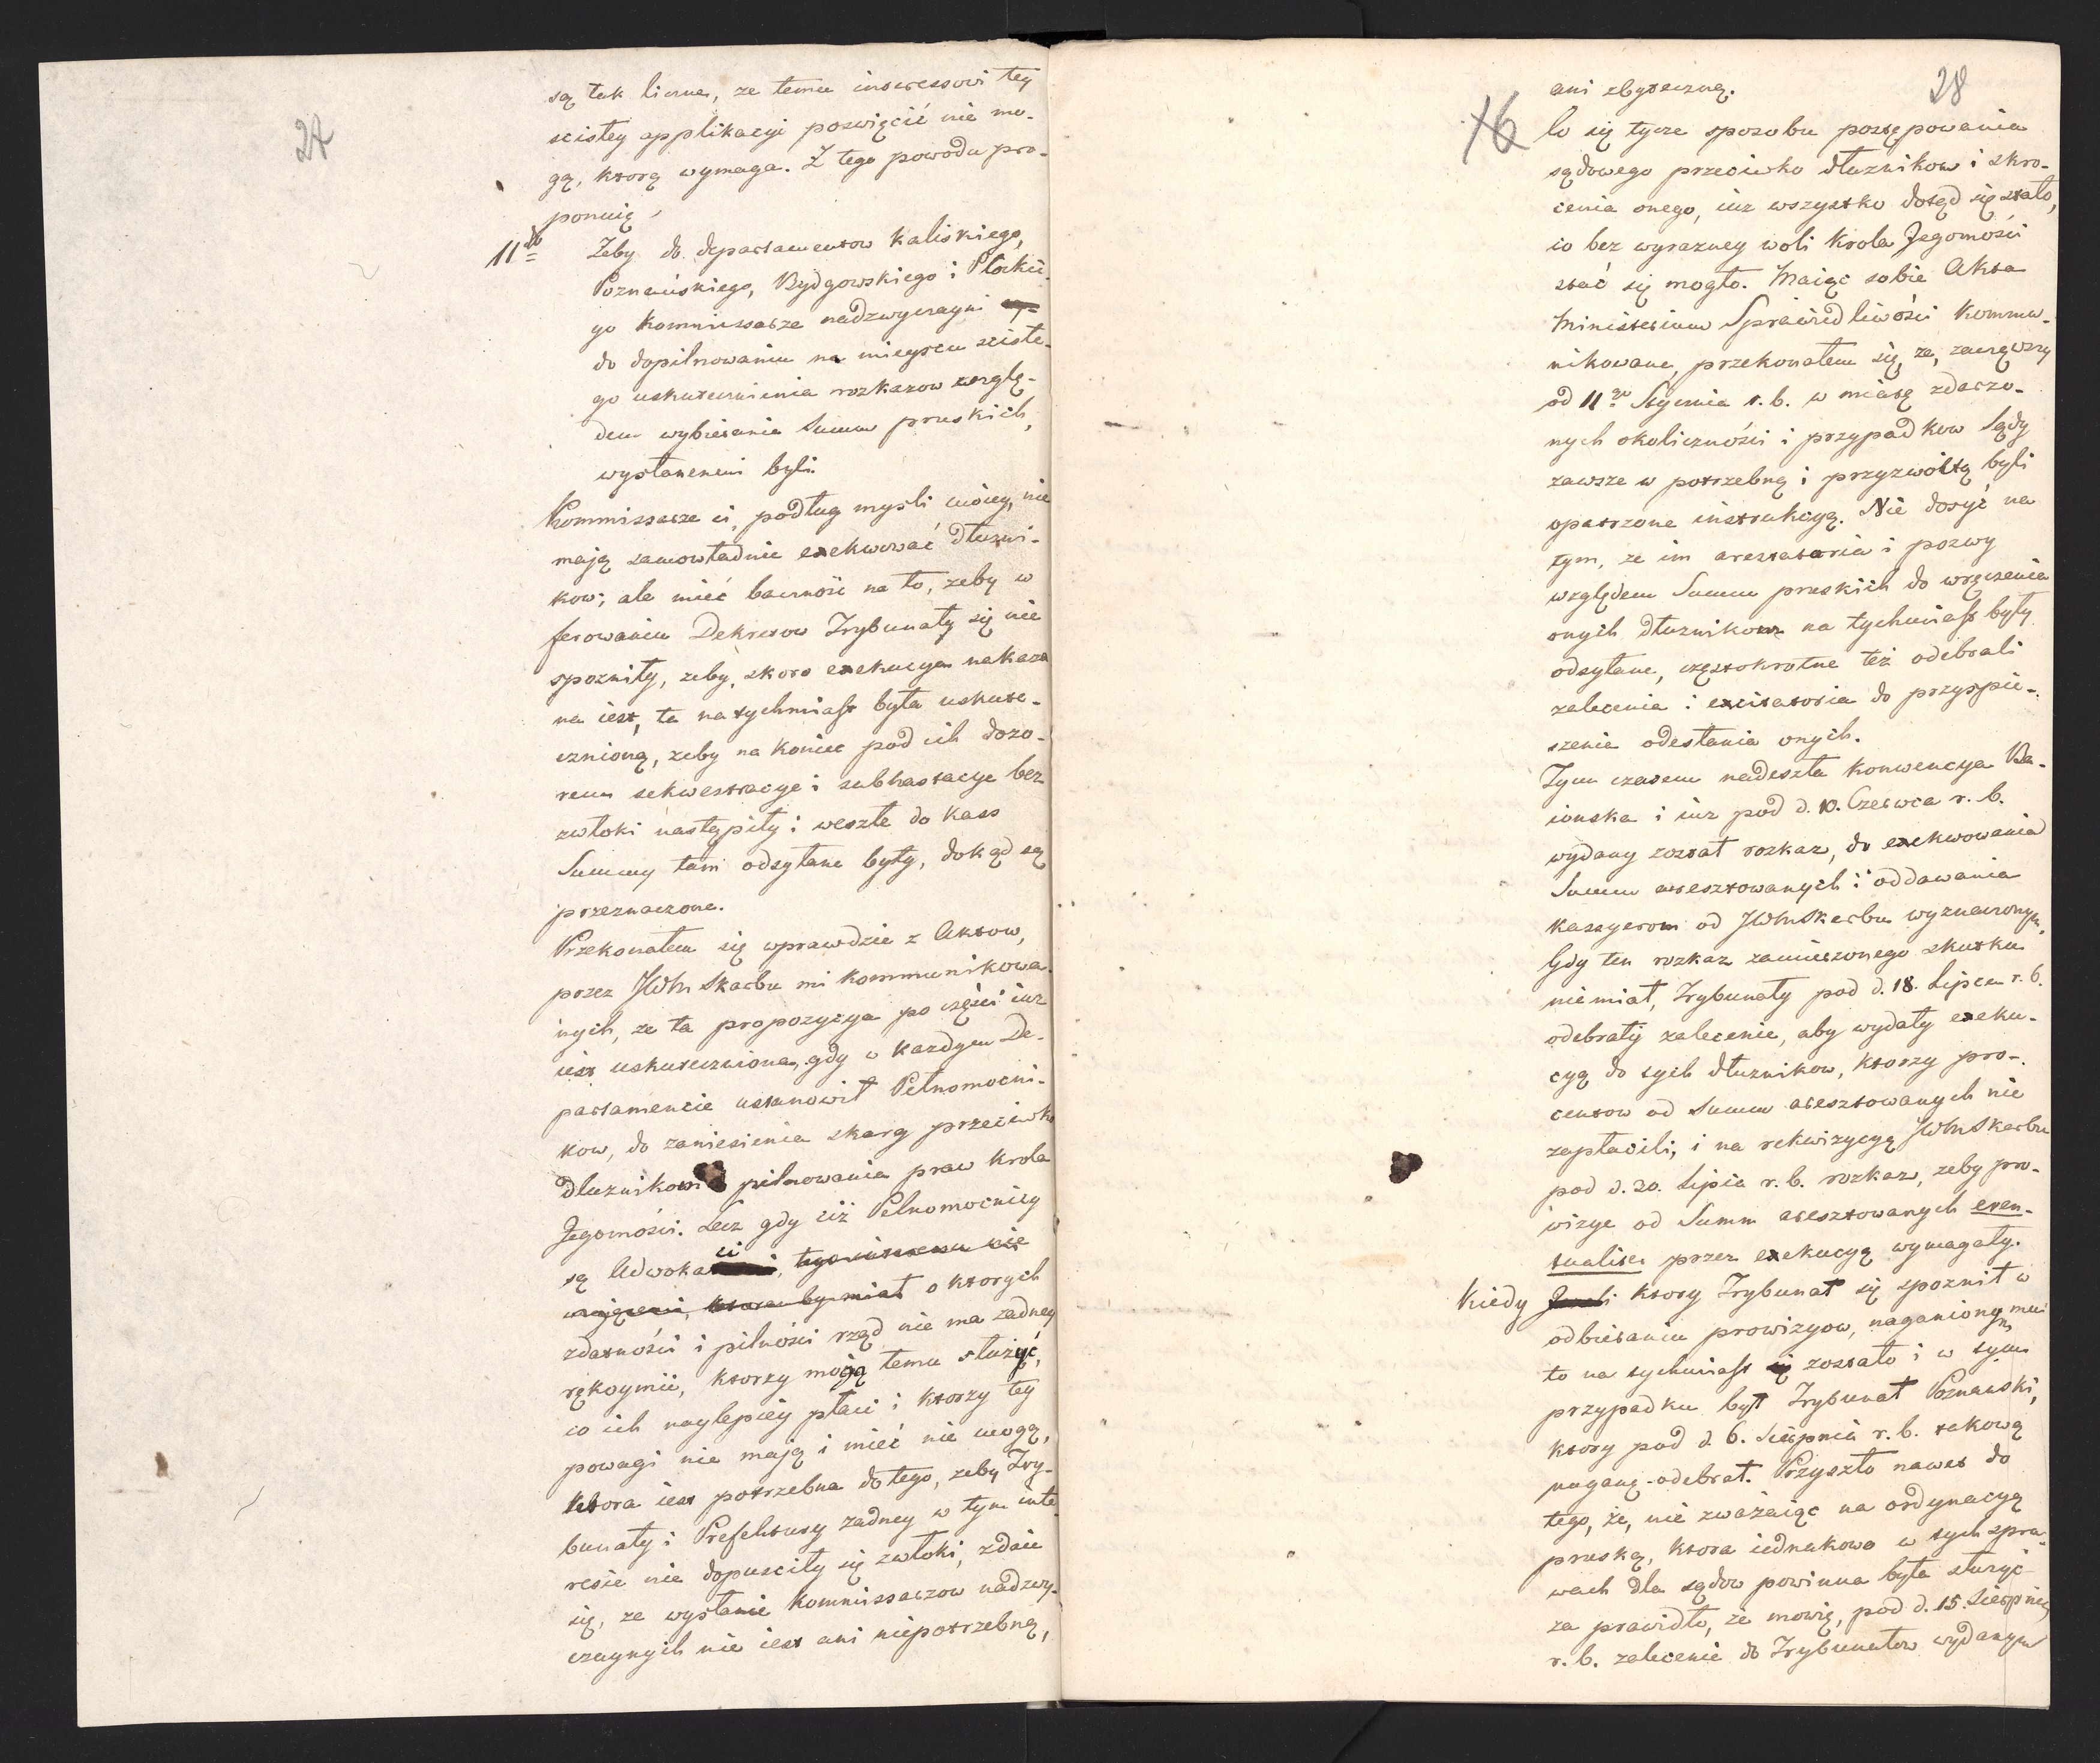 24
są tak liczne, ze temu interessowi tey
scistey applikacyi poswięcić nie mo-
gą, ktorą wymaga. Z tego powodu pro-
ponuię,
11to Zeby do departamentow Kaliskiego,
Poznańskiego, Bydgowskiego i Płockie-
go Kommissarze nadzwyczayni
do dopilnowania na mieyscu sciste-
go uskutecznienia rozkazow wzglę-
dem wybierania Summ pruskich,
wysłanemi byli.
Kommissarze ci, podług mysli moiey, nie
mają samowładnie exekwować dłużni-
kow; ale mieć bacznośc na to, zeby w
ferowaniu Dekretow Trybunały się nie
spozniły, zeby, skoro exekucya nakaza
na iest, ta natychmiast była uskute-
cznioną, zeby na koniec pod ich dozo-
rem sekwestracye i subhastacye bez
zwłoki następiły i weszłe do Kass
Summy tam odsyłane były, dokąd są
przeznaczone.
Przekonałem się wprawdzie z Aktow,
przez JWMn Skarbu mi kommunikowa-
nych, ze ta propozycya po części iuz
iest uskuteczniona, gdy w kazdym De-
partamencie ustanowił Pełnomocni-
kow, do zaniesienia skarg przeciwko
dłużnikom i pilnowania praw Krola
Jegomości. Lecz gdy ciż Pełnomocnicy
są Adwokaci, tego interessu nie
ktoren by miał o ktorych
zdatności i pilności rząd nie ma zadney
rękoymii, ktorzy mogą temu służyć,
co ich naylepiey płaci i ktorzy tey
powagi nie mają i mieć nie mogą,
ktora iest potrzebna do tego, zeby Try-
bunały i Prefektury zadney w tym inte-
resie nie dopusciły się zwłoki, zdaie
się, ze wysłanie Kommissarzow nadzwy-
czaynych nie iest ani niepotrzebną,
28
ani zbyteczną.
16 Co się tycze sposobu postępowania
sądowego przeciwko dłużnikow i skro-
cenia onego, iuz wszystko dotąd się stało,
co bez wyrazney woli Krola Jegomości
stać się mogło. Maiąc sobie Akta
Ministerium Sprawiedliwości kommu-
nikowane, przekonałem się, ze, zacząwszy
od 11go Stycznia r. b. w miarę zdarzo-
nych okoliczności i przypadkow Sądy
zawsze w potrzebną i przyzwoitą byli
opatrzone instrukcyą. Nie dosyć na
tym, że im arestatoria i pozwy
względem Summ pruskich do wręczenia
onych dłużnikom na tychmiast były
odsyłane, częstokrotne też odebrali
zalecenia i excitatoria do przyspie-
szenia odesłania onych.
Tym czasem nadeszła Konwencya Ba-
ionska i iuz pod d. 10. Czerwca r. b.
wydany został rozkaz, do exekwowania
Summ aresztowanych i oddawania
kassyerom od JWMn Skarbu wyznaczonym.
Gdy ten rozkaz zamierzonego skutku
nie miał, Trybunały pod d. 18. Lipca r. b.
odebrały zalecenie, aby wydały exeku-
cyą do tych dłużnikow, ktorzy pro-
centow od Summ aresztowanych nie
zapłacili; i na rekwizycyą JWMn Skarbu
pod d. 20. Lipca r. b. rozkaz, zeby pro-
wizye od Summ aresztowanych even-
tualiter przez exekucyą wymagały.
Kiedy ktory Trybunał się spoznił w
odbieraniu prowizyow, naganionym mu
to na tychmiast zostało i w tym
przypadku był Trybunał Poznanski,
ktory pod d. 6. Sierpnia r. b. takową
naganę odebrał. Przyszło nawet do
tego, że, nie zważaiąc na ordynacyą
pruską, ktora iednakowo w tych spra-
wach dla sądow powinna była służyć
za prawidło, że mowię, pod d. 15. Sierpnia
r. b. zalecenie do Trybunałow wydanym